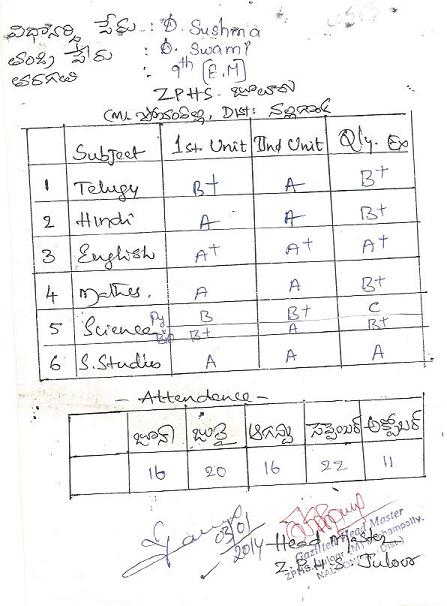 విద్యార్థి పేరు : D. Sushma
తండ్రి పేరు : D. Swami
తరగతి : 9th [E.M]
ZPHS. జూలూరు
(M), Dist: నల్లగొండ
Subject 1st Unit IInd Unit Q'ly. Ex
1 Telugu B+ A B+
2 Hindi A A B+
3 English A+ A+ A+
4 Mathes. A A B+
5 Science Py B B+ C
Bio B+ A B+
6 S.Studies A A A
- Attendence -
జూన్ జులై ఆగస్టు సెప్టెంబర్ అక్టోబర్
16 20 16 22 11
03/01
2014
Head Master
Gazitted Head Master
Z.P.H.S. Juloor